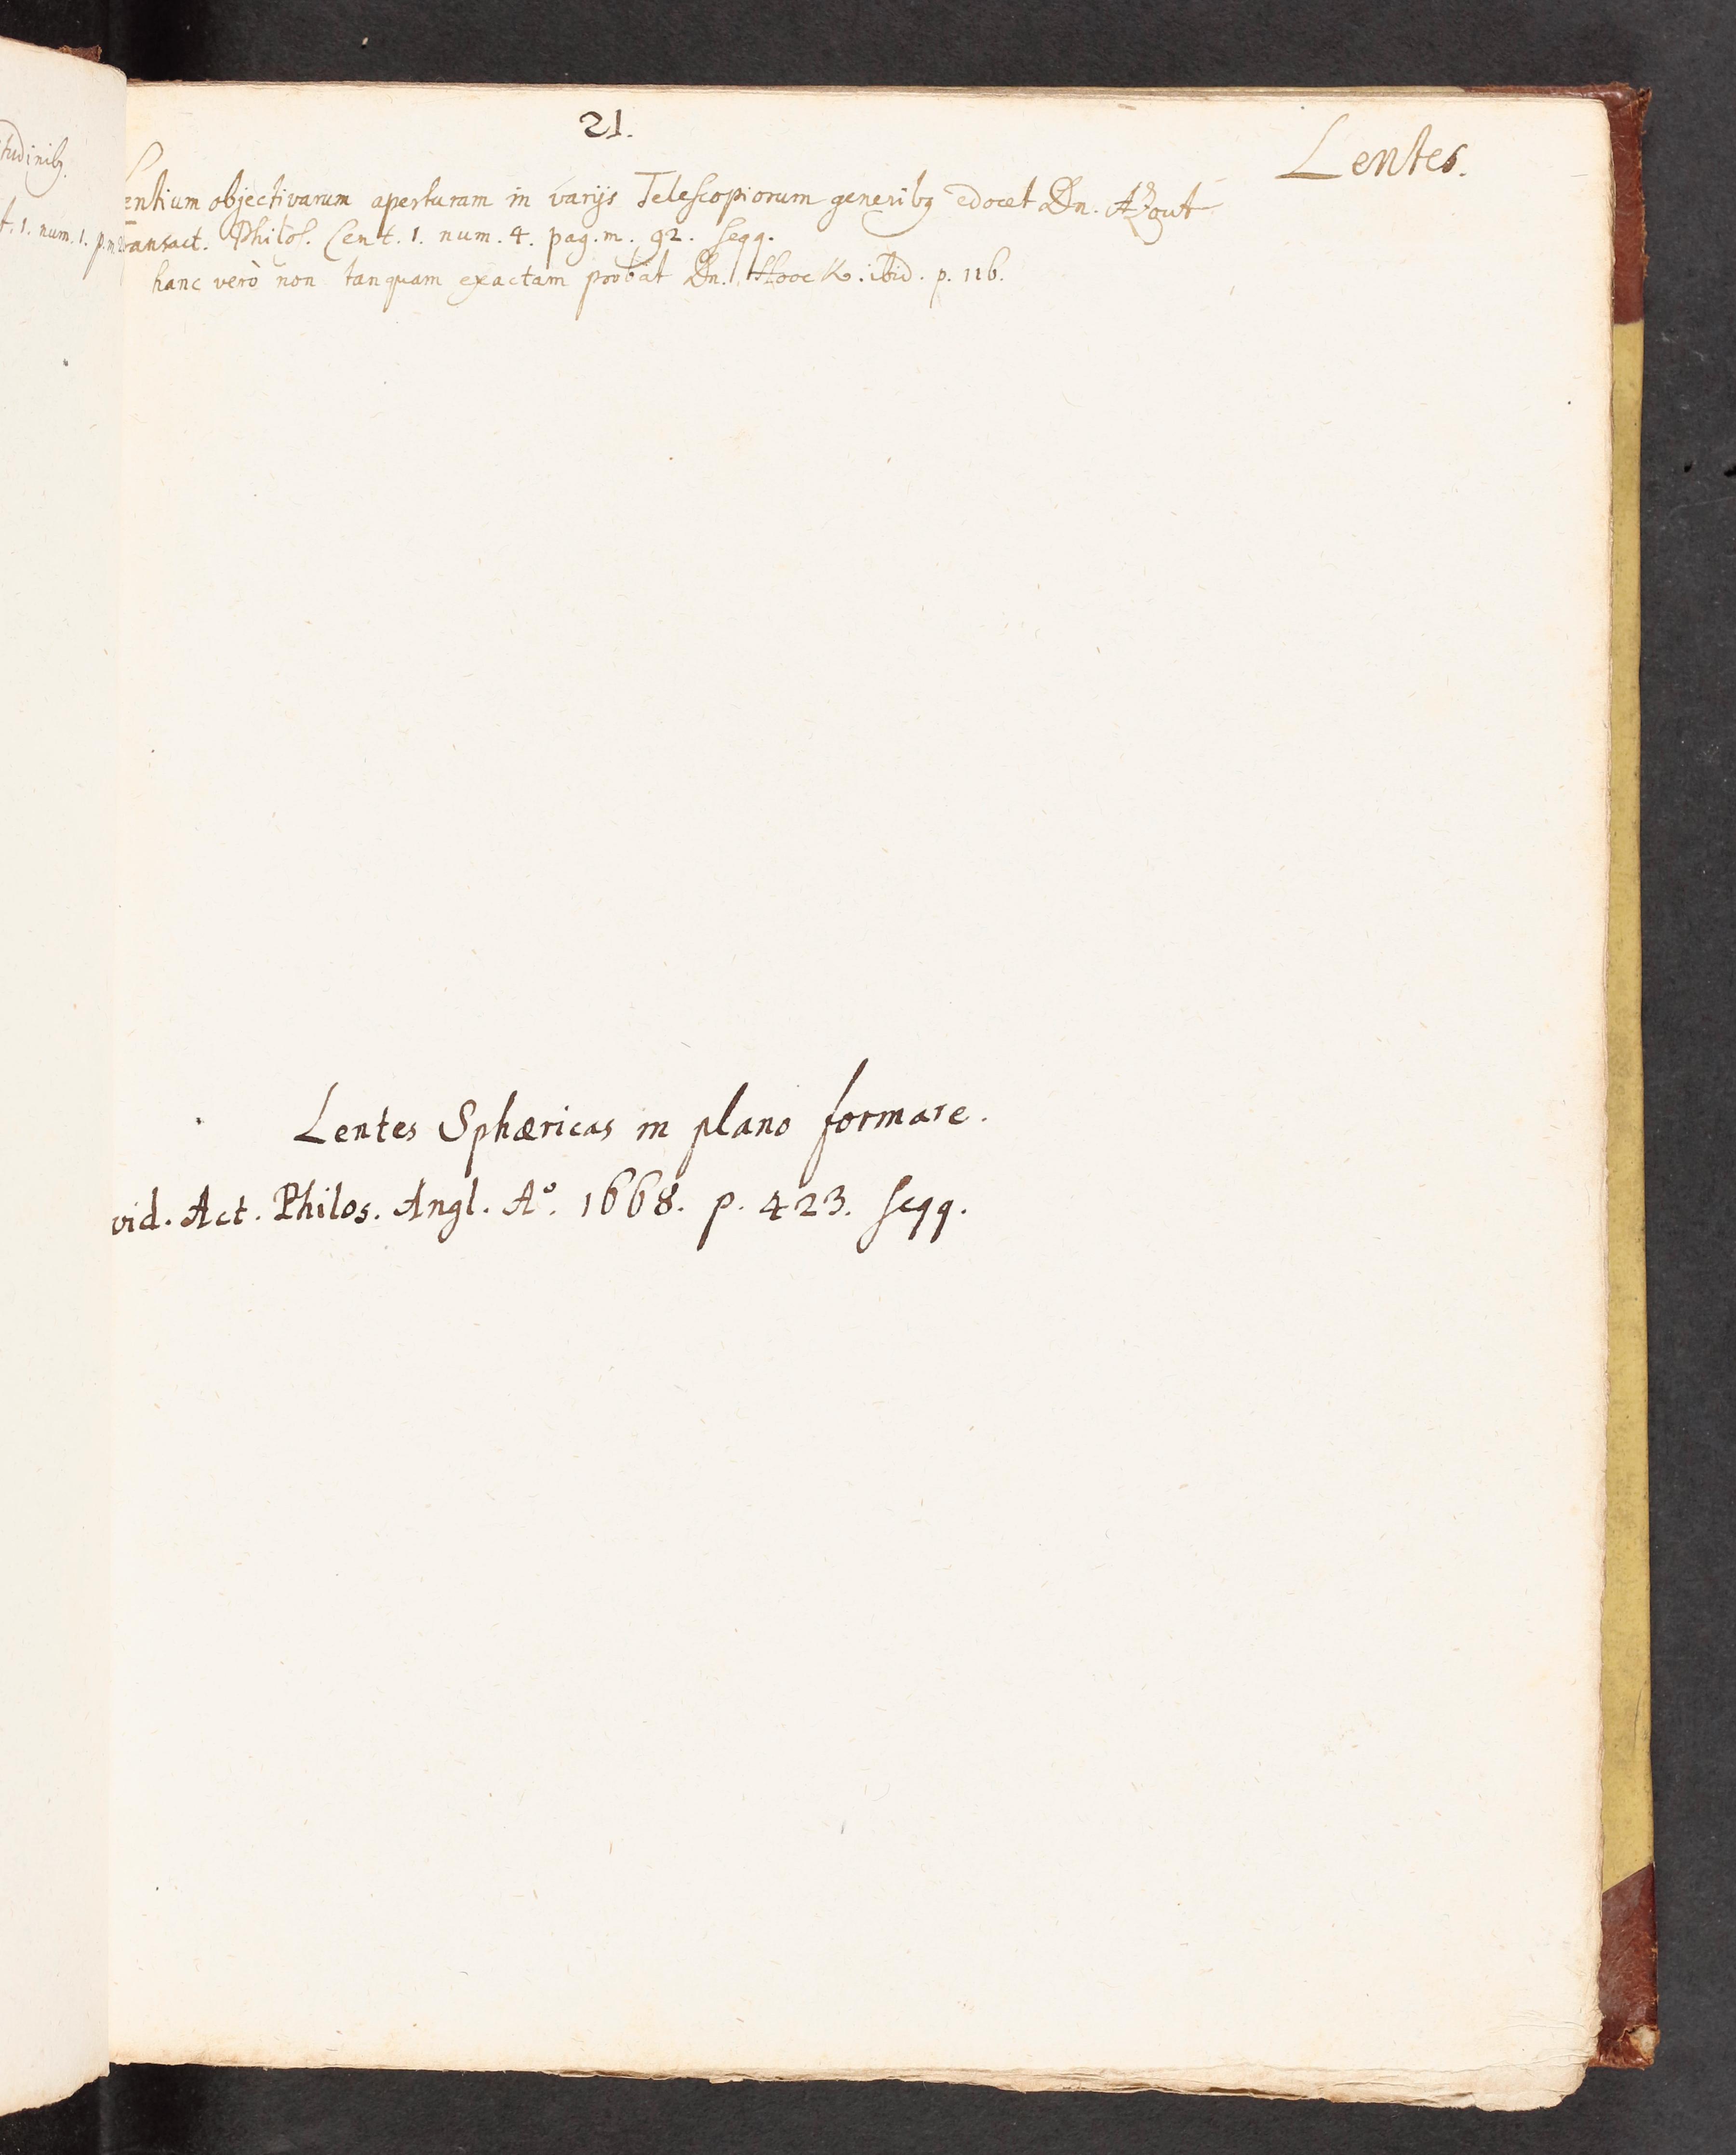 tudinibꝫ.
t. 1. num. 1. p. m.
21.
Lentes.
Lentium objectivarum aperturam in varijs Telescopiorum generibꝫ edocet Dn. Azout
Transact. Philos. Cent. 1. num. 4. pag. m. 92. seqq.
hanc verò non tanquam exactam probat Dn. Hoock. ibid. p. 116.
Lentes Sphæricas in plano formare.
vid. Act. Philos. Angl. A°. 1668. p. 423. seqq.